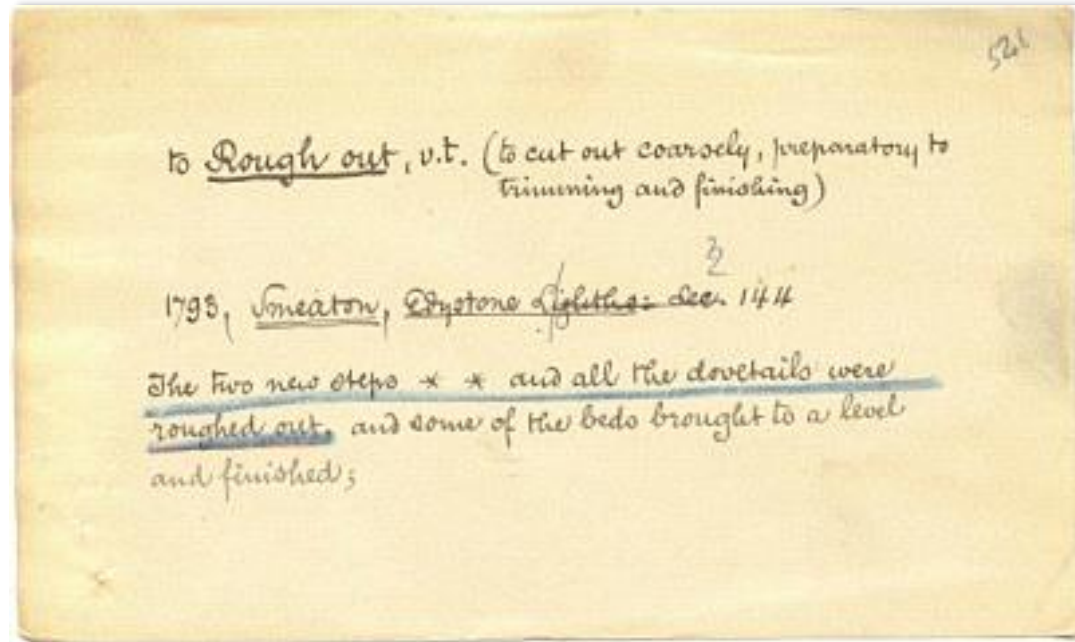 to Rough out, v.t. (to cut out coarsely, preparatory to
trimming and finishing)
1793, Smeaton, Edystone Lightho: sec. 144
The two new steps * * and all the dovetails were
roughed out, and some of the beds brought to a level
and finished;